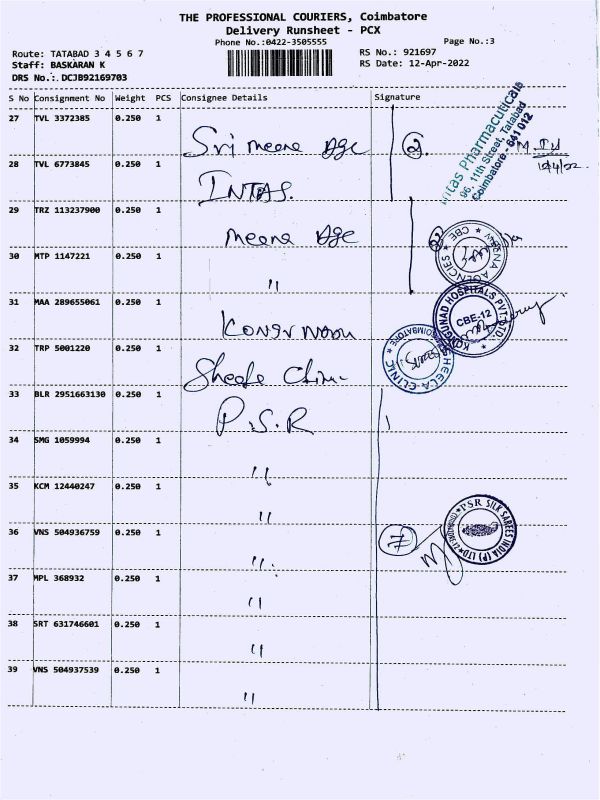 THE PROFESSIONAL COURIERS, Coimbatore
Delivery Runsheet - PCX
Phone No.:0422-3505555
Page No.:3
Route: TATABAD 3 4 5 6 7
RS No.: 921697
Staff: BASKARAN K
RS Date: 12-Apr-2022
DRS No.: DCJB92169703
S No Consignment No Weight PCS Consignee Details Signature
27 TVL 3372385 0.250 1 Sri Meena Age
28 TVL 6773845 0.250 1 INTAS.
29 TRZ 113237900 0.250 1 Meena Age
30 MTP 1147221 0.250 1 "
31 MAA 289655061 0.250 1
32 TRP 5001220 0.250 1
33 BLR 2951663130 0.250 1 P.S.R
34 SMG 1059994 0.250 1 "
35 KCM 12440247 0.250 1 "
36 VNS 504936759 0.250 1 "
37 MPL 368932 0.250 1 "
38 SRT 631746601 0.250 1 "
39 VNS 504937539 0.250 1 "
2
Intas Pharmaceuticals
96, 11th Street, Tatabad
Coimbatore - 641 012
AGENCIES
CBE
KONGUNAD HOSPITALS PVT. LTD.
CBE-12
SHEELA CLINIC
COIMBATORE
7
PSR SILK SAREES INDIA (P) LTD